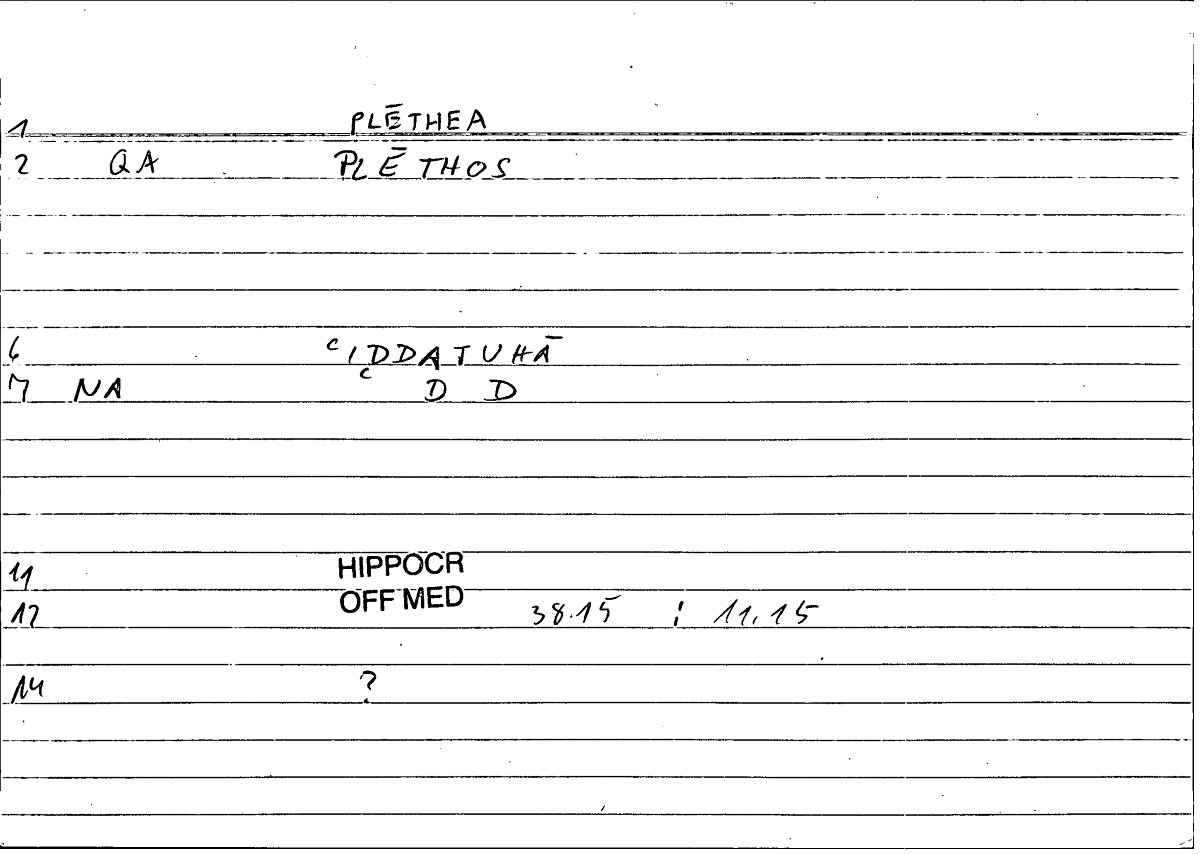 1 PLĒTHEA
2 QA PLĒTHOS
6 ʿIDDATUHĀ
7 NA ʿ D D
11 HIPPOCR
12 OFF MED 38.15 ; 11.15
14 ?